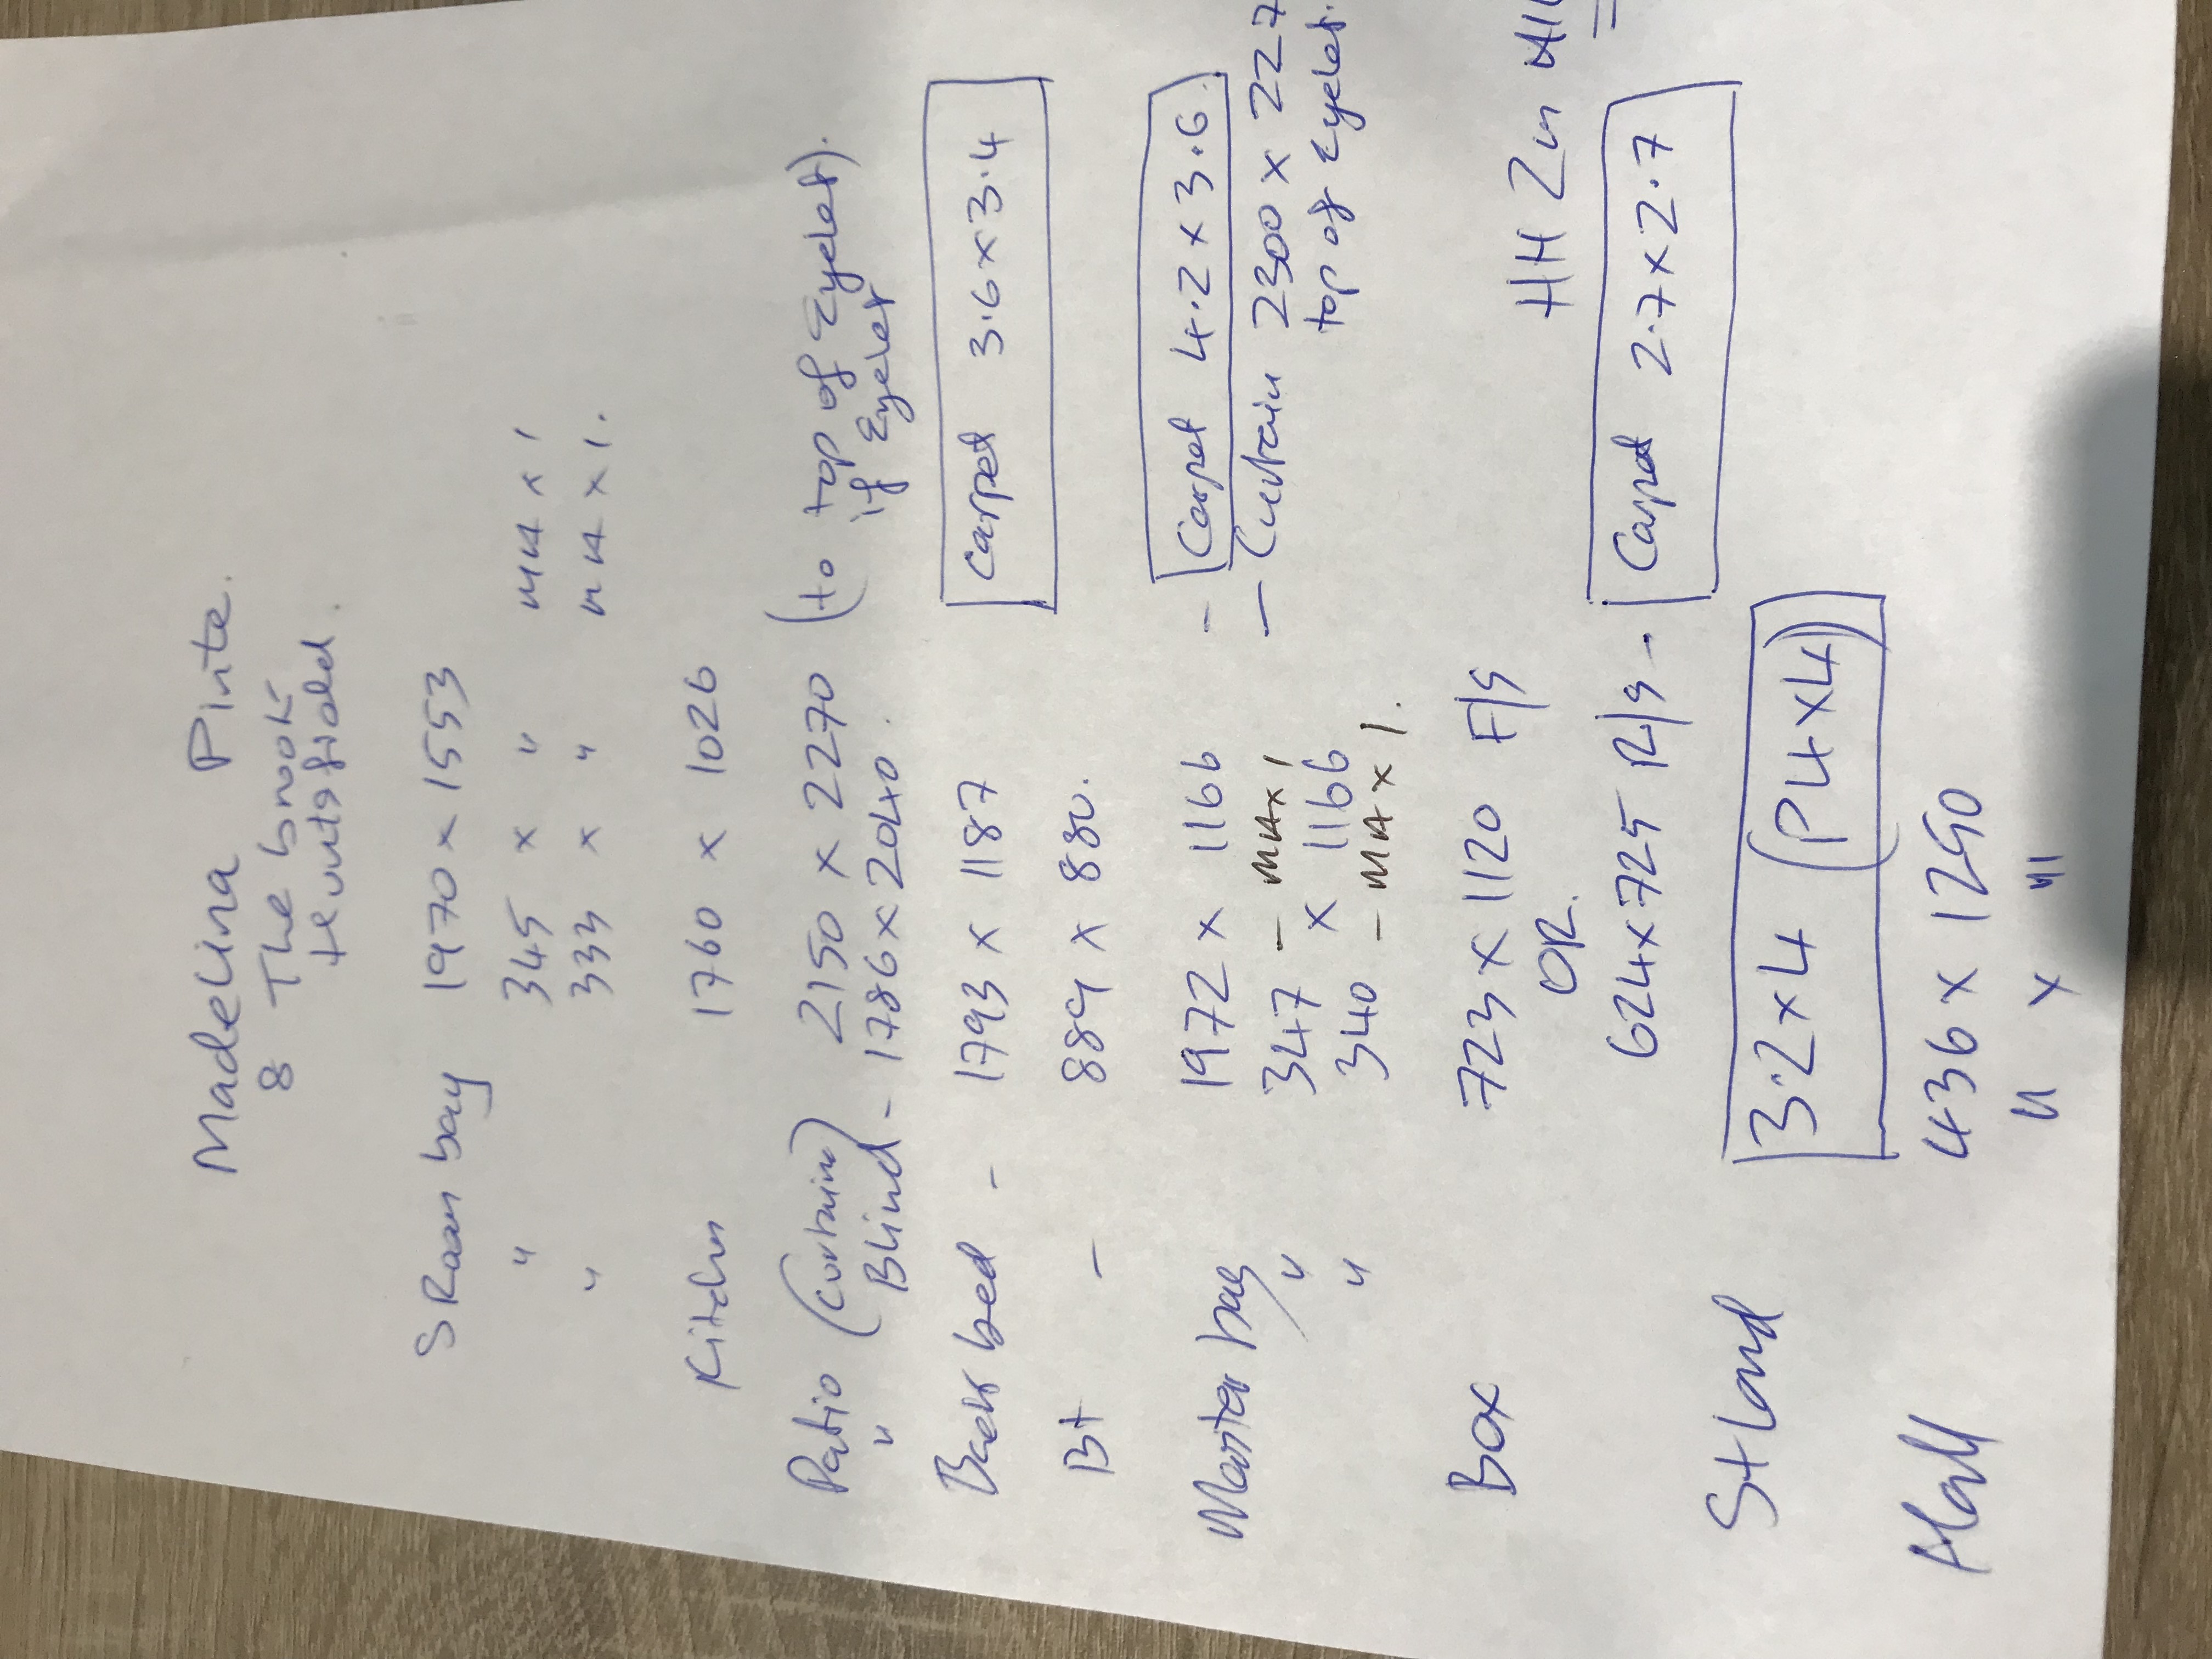 Madelina Pinte.
8 The brook
S Room bay 1970 x 1553
" 345 x " MAX 1
" 333 x " MAX 1.
Kitchn 1760 x 1026
Patio (Curtain) 2150 x 2270 (to top of Eyelet).
" Blind - 1786 x 2040. if Eyelet
Back bed - 1793 x 1187 Carpet 3.6 x 3.4
Bt - 889 x 880.
Master bay 1972 x 1166 - Carpet 4.2 x 3.6
" 347 - MAX 1 - Curtain 2300 x 227
x 1166 top of Eyelet.
" 340 - MAX 1.
HH 2m
Box 723 x 1120 F/S
OR.
624 x 725 R/S - Carpet 2.7 x 2.7
St Land 3.2 x 4 (P4 x 4)
Hall 436 x 1250
" x "